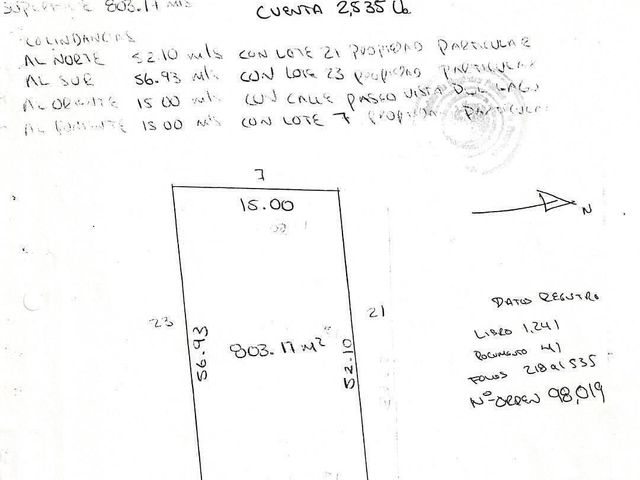 SUPERFICIE 803.17 mts
CUENTA 2,535 Lb
COLINDANCIAS
AL NORTE 52.10 mts CON LOTE 21 PROPIEDAD PARTICULAR
AL SUR 56.93 mts CON LOTE 23 PROPIEDAD PARTICULAR
AL ORIENTE 15.00 mts CON CALLE PASEO VISTA DEL LAGO
AL PONIENTE 15.00 mts CON LOTE 7 PROPIEDAD PARTICULAR
7
15.00
N
23
56.93
803.17 m²
52.10
21
DATOS REGISTRO
LIBRO 1,241
DOCUMENTO 41
FOLIOS 218 al 535
Nº ORDEN 98,019